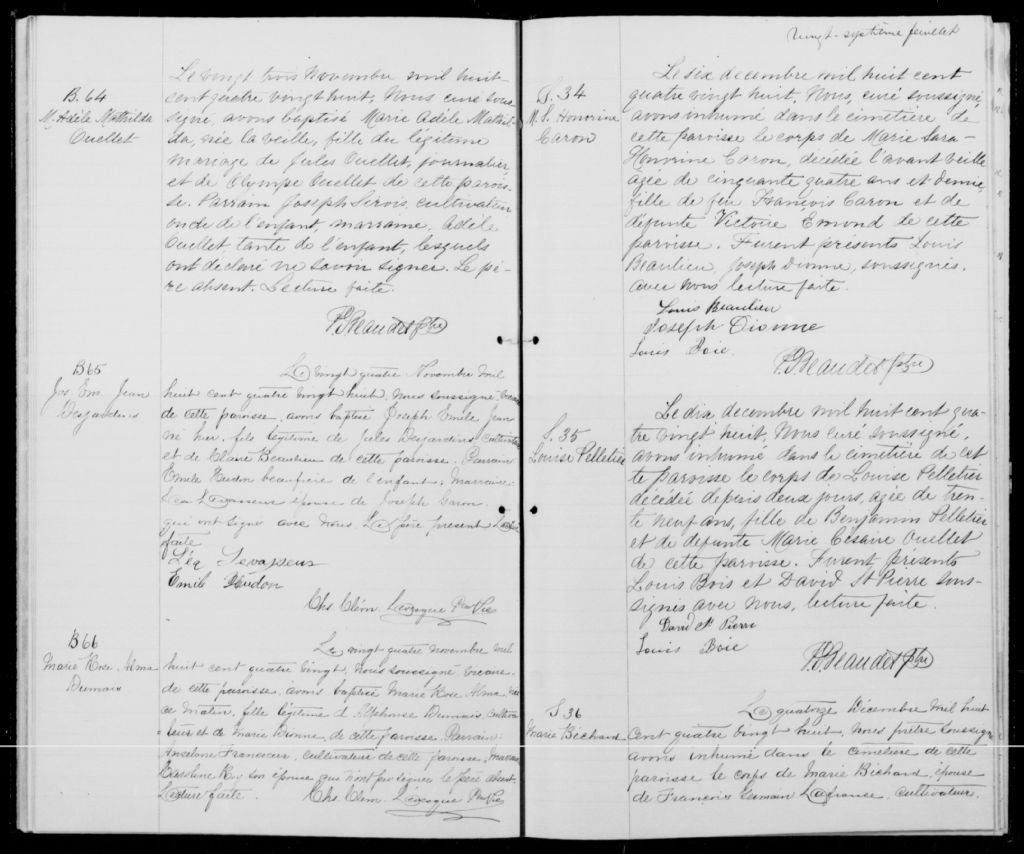 B. 64
M. Adèle Mathilda
Ouellet
Le vingt trois Novembre mil huit
cent quatre vingt huit, Nous curé sous
signé, avons baptisé Marie Adèle Mathil-
da, née la veille, fille du légitime
mariage de Jules Ouellet, journalier
et de Olympe Ouellet, de cette parois-
se. Parrain Joseph Servis, cultivateur
oncle de l'enfant, marraine, Adèle
Ouellet tante de l'enfant, lesquels
ont déclaré ne savoir signer. Le pè-
re absent. Lecture faite.
Beaudet ptre
B65
Jos. Em. Jean
Desjardins
Le vingt quatre Novembre mil
huit cent quatre vingt huit, Nous soussigné vicaire
de cette paroisse, avons baptisé Joseph Emile Jean
né hier, fils légitime de Jules Desjardins, cultivateur
et de Claire Beaulieu de cette paroisse. Parrain
Emile Heudon beaufrère de l'enfant; Marraine:
Léa Levasseur épouse de Joseph Garon
qui ont signé avec nous. Le père présent Lecture
faite
Léa Levasseur
Emile Heudon
Chs. Clém. Lévesque Ptre Vic
B66
Marie Rose Alma
Dumais
Le vingt quatre novembre mil
huit cent quatre vingt, nous soussigné vicaire
de cette paroisse, avons baptisé Marie Rose Alma, née
ce matin, fille légitime d'Alphonse Dumais, cultiva
teur et de Marie Dionne, de cette paroisse. Parrain
Anselme cultivateur de cette paroisse, Marraine
Caroline son épouse qui n'ont pu signer le père absent.
Lecture faite. Chs. Clém. Lévesque Ptre Vic
Vingt-septième feuillet
S. 34
M. S. Honorine
Caron
Le six decembre mil huit cent
quatre vingt huit, Nous, curé soussigné,
avons inhumé dans le cimetière de
cette paroisse le corps de Marie Sara
Honorine Caron, décédée l'avant veille
agée de cinquante quatre ans et demie,
fille de feu François Caron et de
défunte Victoire Emond de cette
paroisse. Furent présents Louis
Beaulieu, Joseph Dionne, soussignés.
avec nous lecture faite.
Louis Beaulieu
Joseph Dionne
Louis Boie.
Beaudet ptre
S. 35
Louise Pelletier
Le dix decembre mil huit cent qua-
tre vingt huit, Nous curé soussigné,
avons inhumé dans le cimetière de cet
te paroisse le corps de Louise Pelletier
décédée depuis deux jours, agée de tren-
te neuf ans, fille de Benjamin Pelletier
et de défunte Marie Césaire Ouellet
de cette paroisse. Furent présents
Louis Bois et David St Pierre sous-
signés avec nous, lecture faite.
David St Pierre
Louis Boie
Beaudet ptre
S 36
Marie Bichard
Le quatorze Décembre mil huit
cent quatre vingt huit, Nous prêtre soussigné
avons inhumé dans le cimetière de cette
paroisse le corps de Marie Bichard, épouse
de François Germain Lafrance, cultivateur.